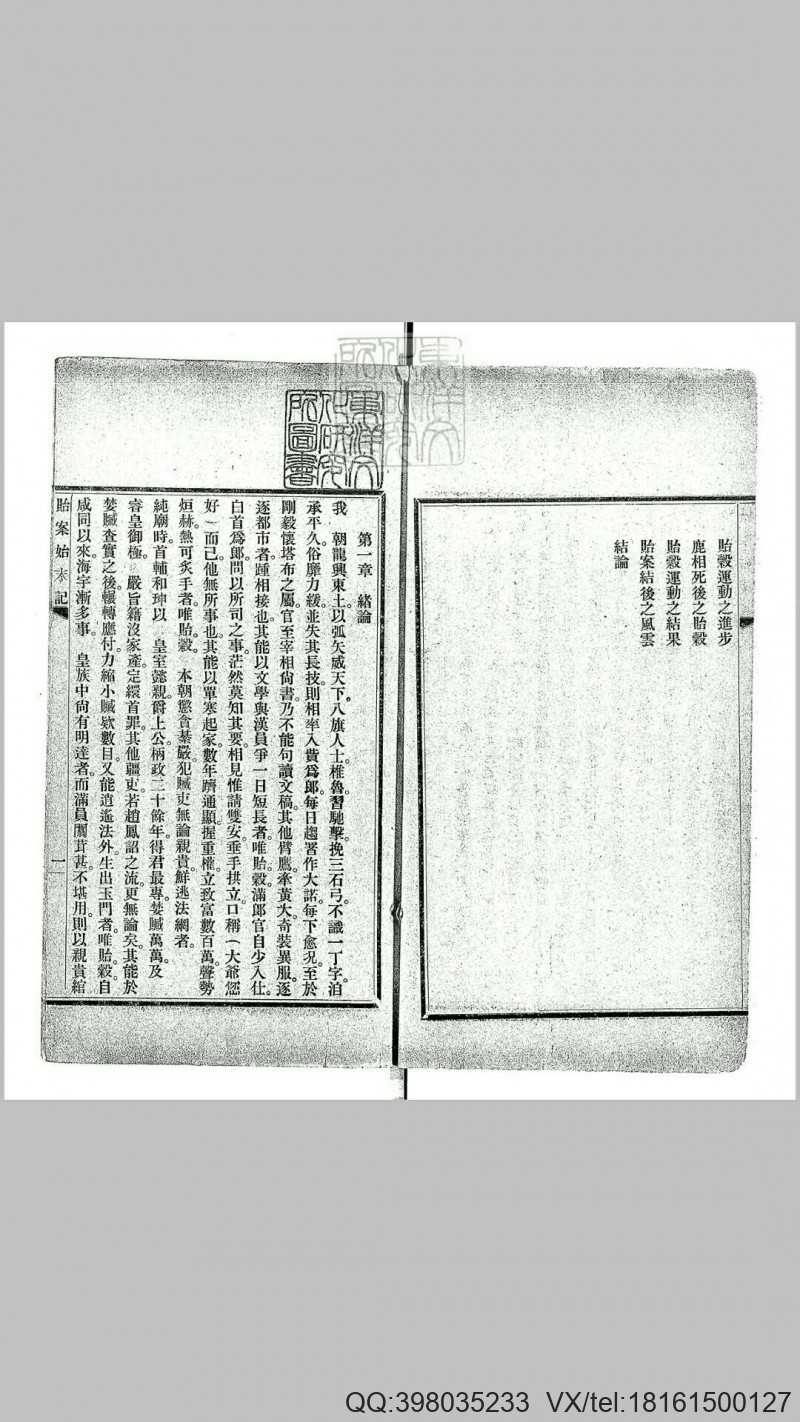 貽穀運動之進步
鹿相死後之貽穀
貽穀運動之結果
貽案結後之風雲
結論
東洋文化研究所圖書
第一章　緒論
我　朝龍興東土。以弧矢威天下。八旗人士。椎魯習馳擊。挽三石弓。不識一丁字。洎
承平久。俗靡力緩。並失其長技。則相率入貲爲郎。每日趨署作大諾。每下愈况。至於
剛毅懷塔布之屬。官至宰相尙書。乃不能句讀文稿。其他臂鷹牽黃。大奇裝異服。逐
逐都市者。踵相接也。其能以文學與漢員爭一日短長者。唯貽穀。滿郎官自少入仕。
白首爲郎。問以所司之事。茫然莫知其要。相見惟請雙安。垂手拱立。口稱（大爺您
好）而已。他無所事也。其能以單寒起家。數年躋通顯。握重權。立致富數百萬。聲勢
烜赫。熱可炙手者。唯貽穀。　本朝懲貪綦嚴。犯贓吏無論親貴。鮮逃法網者。
純廟時首輔和珅。以　皇室懿親。爵上公。柄政二十餘年。得君最專。婪贓萬萬。及
睿皇御極。　嚴旨籍沒家產。定繯首罪。其他疆吏。若趙鳳詔之流。更無論矣。其能於
婪贓查實之後。輾轉應付。力縮小贓欵數目。又能逍遙法外。生出玉門者。唯貽穀。自
咸同以來。海宇漸多事。　皇族中尙有明達者。而滿員闒茸甚。不堪用。則以親貴綰
貽案始末記
一
QQ:398035233 VX/tel:18161500127